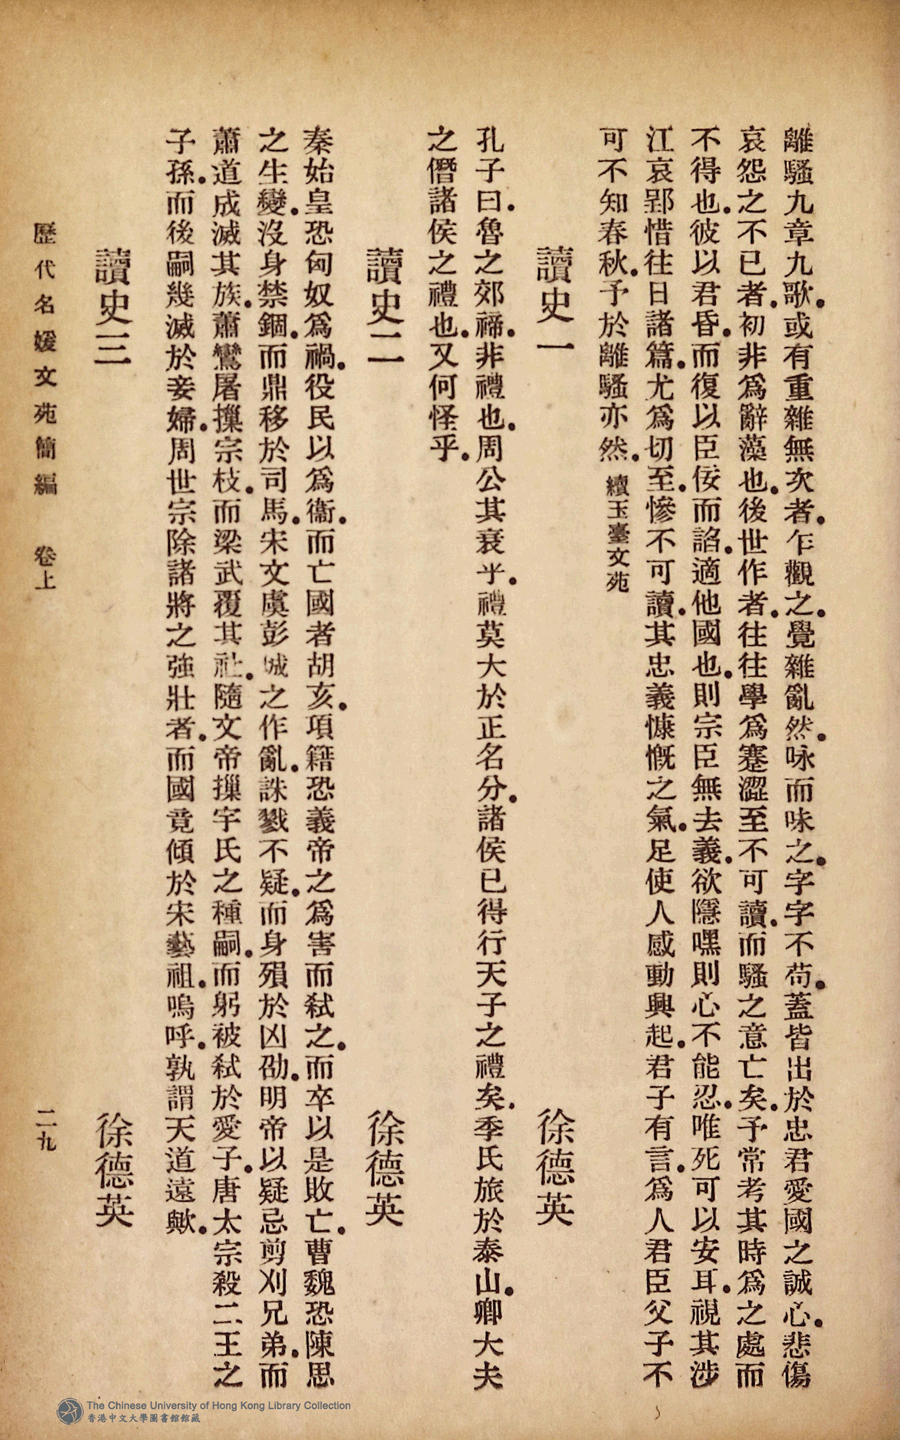 離騷九章九歌。或有重雜無次者。乍觀之。覺雜亂然。咏而味之。字字不苟。蓋皆出於忠君愛國之誠心。悲傷
哀怨之不已者。初非爲辭藻也。後世作者。往往學爲蹇澀至不可讀。而騷之意亡矣。予常考其時爲之處而
不得也。彼以君昏。而復以臣佞而諂。適他國也。則宗臣無去義。欲隱嘿則心不能忍。唯死可以安耳。視其涉
江哀郢惜往日諸篇。尤爲切至。慘不可讀。其忠義慷慨之氣。足使人感動興起。君子有言。爲人君臣父子不
可不知春秋。予於離騷亦然。 續玉臺文苑
讀史一 徐德英
孔子曰。魯之郊禘。非禮也。周公其衰乎。禮莫大於正名分。諸侯已得行天子之禮矣。季氏旅於泰山。卿大夫
之僭諸侯之禮也。又何怪乎。
讀史二 徐德英
秦始皇恐匈奴爲禍。役民以爲衞。而亡國者胡亥。項籍恐義帝之爲害而弒之。而卒以是敗亡。曹魏恐陳思
之生變。沒身禁錮。而鼎移於司馬。宋文虞彭城之作亂。誅戮不疑。而身殞於凶劭。明帝以疑忌剪刈兄弟。而
蕭道成滅其族。蕭鸞屠摷宗枝。而梁武覆其社。隨文帝摷宇氏之種嗣。而躬被弒於愛子。唐太宗殺二王之
子孫。而後嗣幾滅於妾婦。周世宗除諸將之強壯者。而國竟傾於宋藝祖。嗚呼。孰謂天道遠歟。
讀史三 徐德英
歷代名媛文苑簡編 卷上 二九
The Chinese University of Hong Kong Library Collection
香港中文大學圖書館館藏